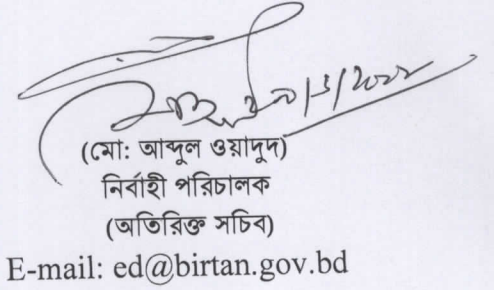 (মো: আব্দুল ওয়াদুদ)
নির্বাহী পরিচালক
(অতিরিক্ত সচিব)
E-mail: ed@birtan.gov.bd